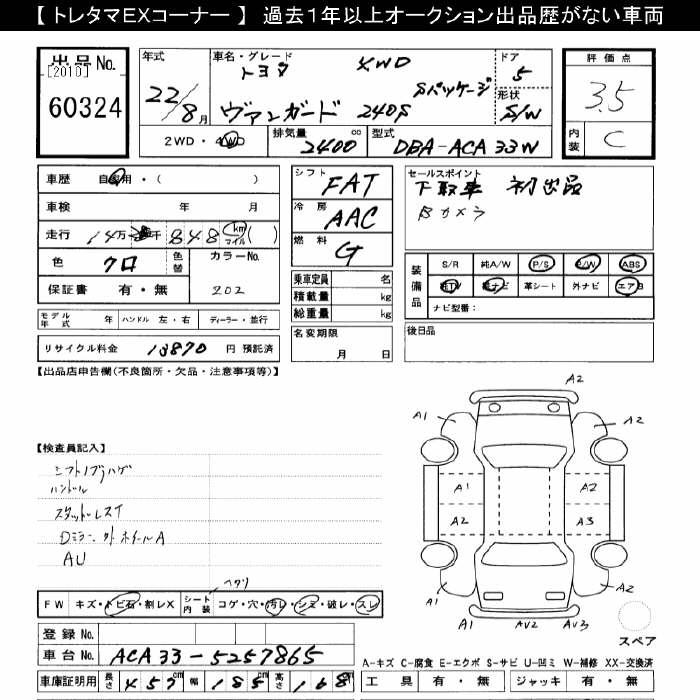 【 トレタマEXコーナー 】 過去１年以上オークション出品歴がない車両
出品No.
[2010]
60324
年式
22/8月
車名・グレード
トヨタ 4WD
Sパッケージ
ヴァンガード 240S
ドア
5
形状
S/W
評価点
3.5
内装
C
2WD・4WD
排気量
2400 cc
型式
DBA-ACA33W
車歴 自家用・( )
車検 年 月
走行 14万 千 848 km マイル ( )
色 クロ
色替
カラーNo.
202
保証書 有・無
シフト
FAT
冷房
AAC
燃料
G
乗車定員 名
積載量 kg
総重量 kg
セールスポイント
下取車 初出品
Bカメラ
装備品
S/R 純A/W P/S P/W ABS
純TV 純ナビ 革シート 外ナビ エアB
ナビ型番:
モデル年式 年 ハンドル 左・右 ディーラー・並行
リサイクル料金 13870 円 預託済
名変期限
月 日
後日品
【出品店申告欄(不良箇所・欠品・注意事項等)】
【検査員記入】
シフトノブハゲ
ハンドル
スタッドレスT
Dミラー、外 ホイールA
AU
A2
A1
A2
A1
A2
A2
A3
A1
A2
A1
AV2
AV3
スペア
FW キズ・トビ石・割レX
シート内装
コゲ・穴・汚レ・シミ・破レ・スレ
ヘタリ
登録No.
車台No. ACA33-5257865
車庫証明用 長さ 457cm 幅 185cm 高さ 168cm
A-キズ C-腐食 E-エクボ S-サビ U-凹ミ W-補修 XX-交換済
工具 有・無 ジャッキ 有・無